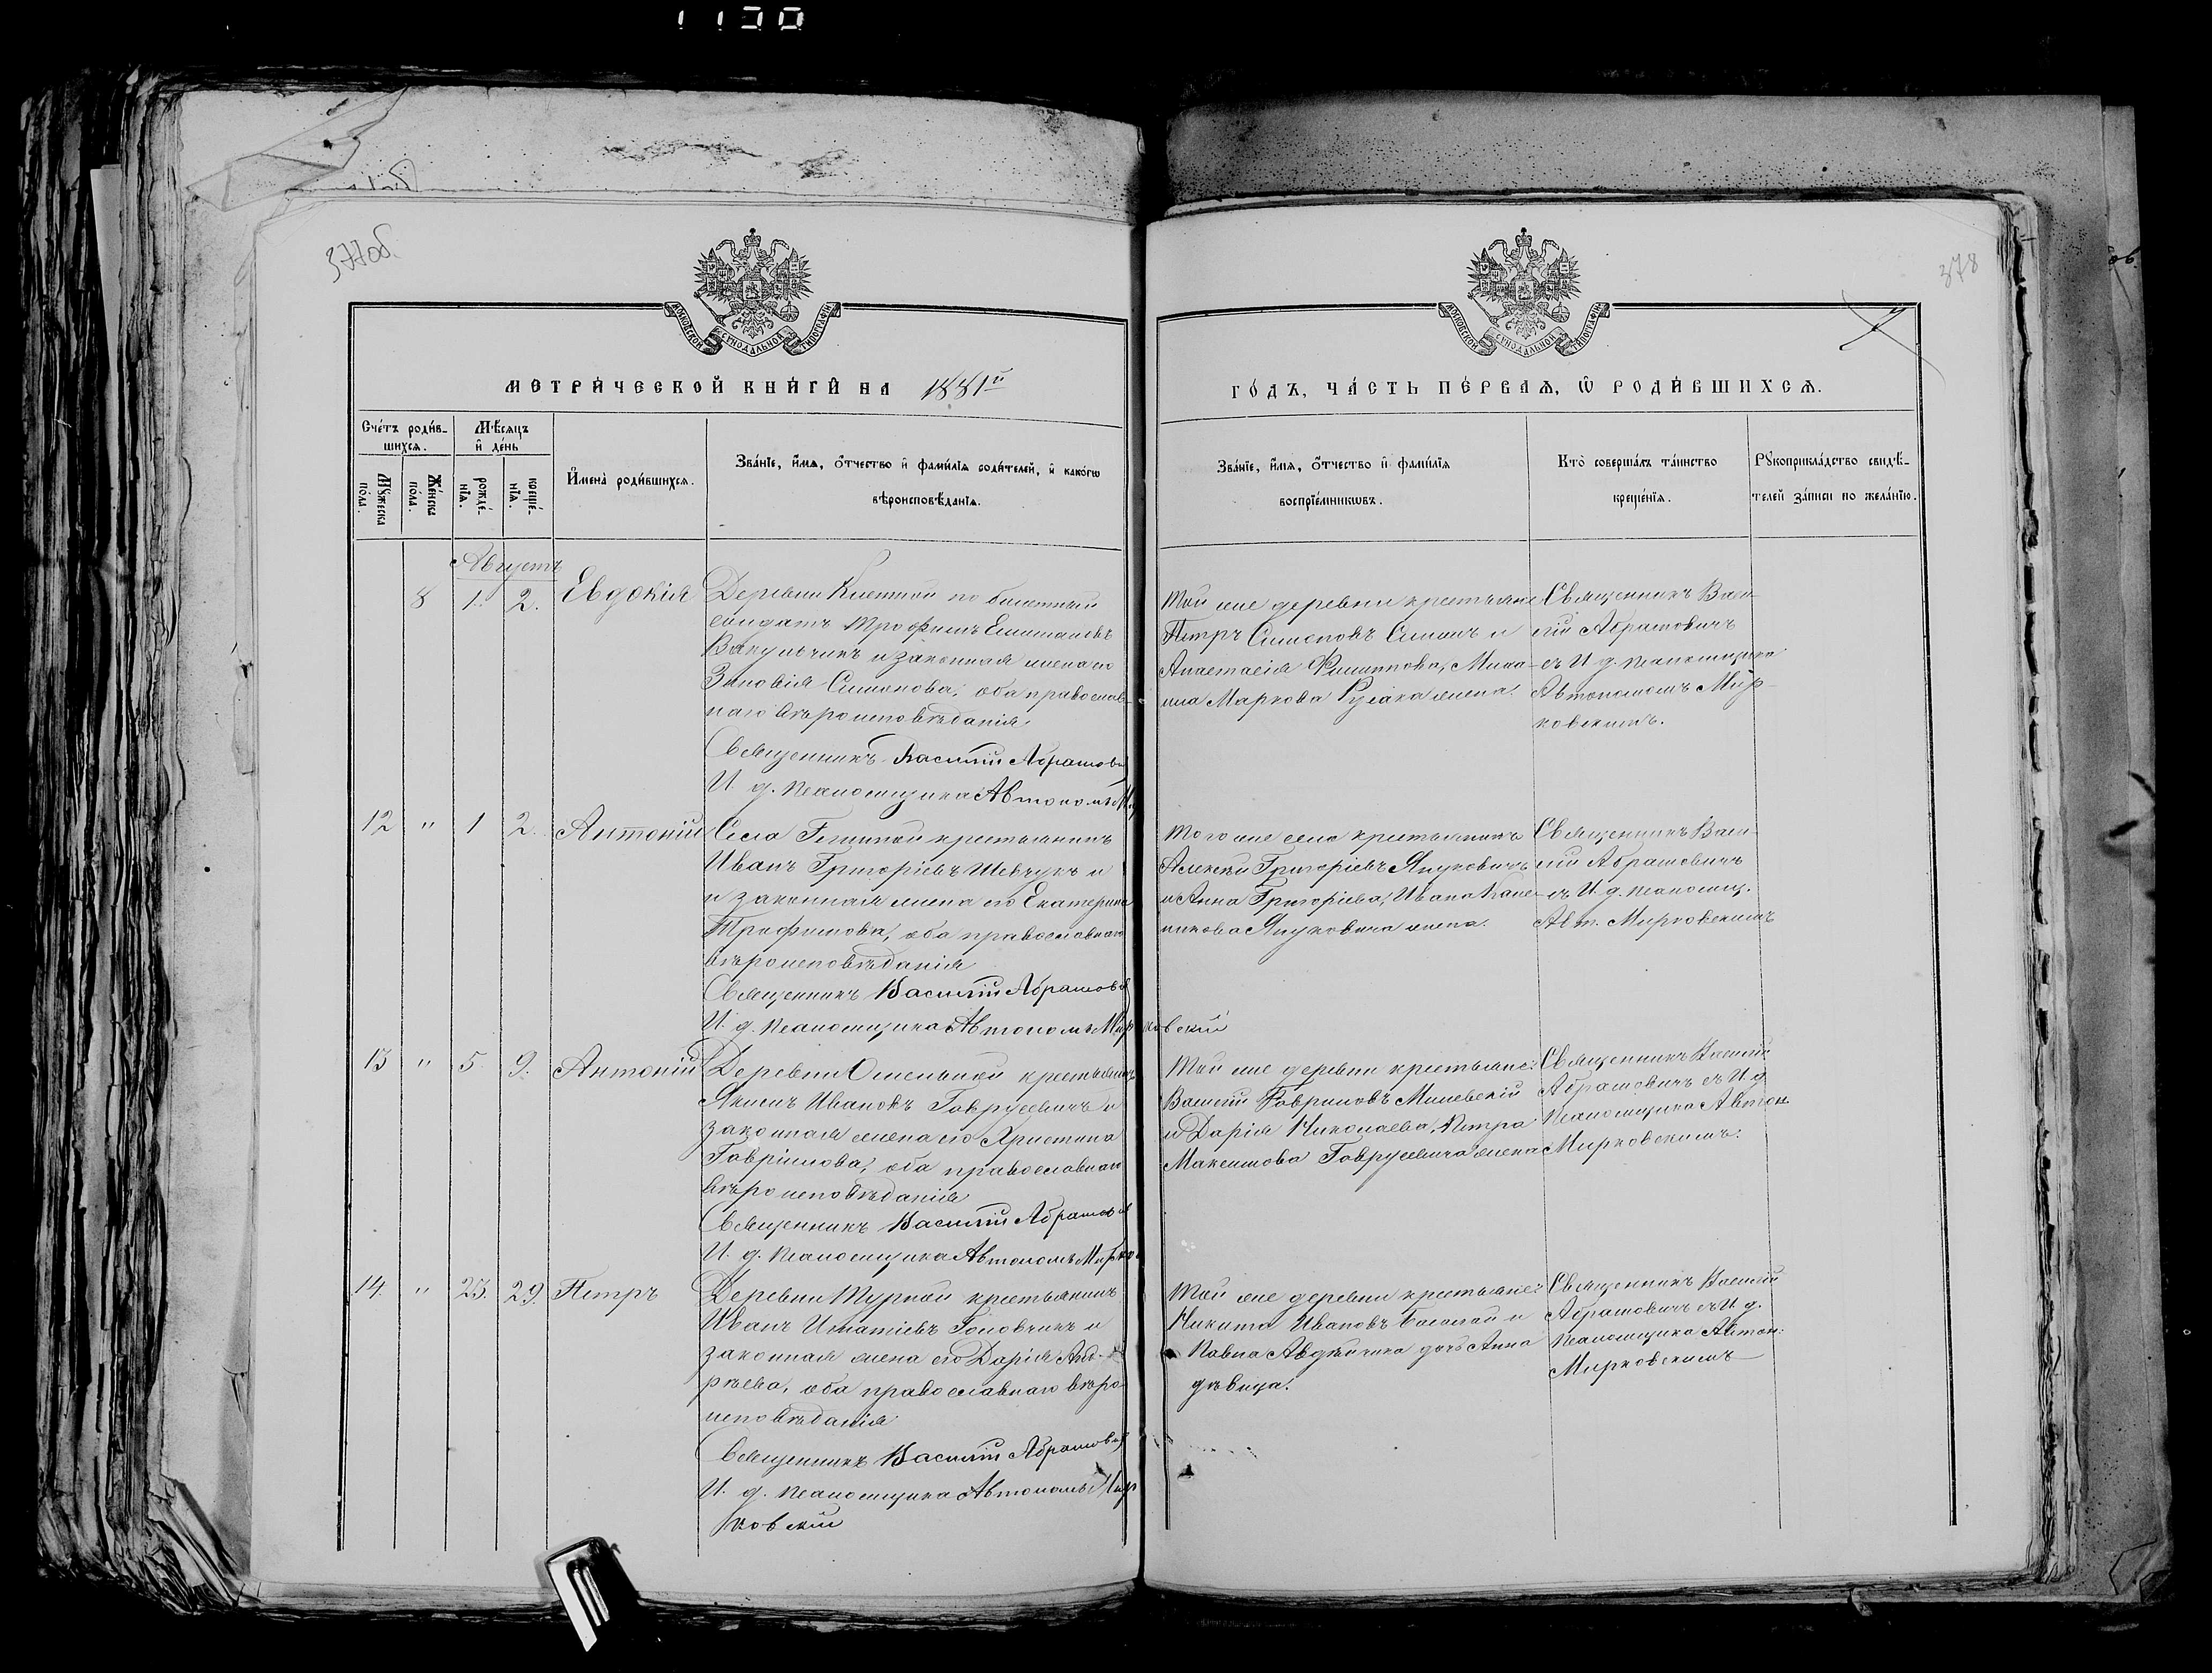 1100
377об.
378
МОСКОВСКОЙ СУНОДАЛЬНОЙ ТИПОГРАФІИ
МОСКОВСКОЙ СУНОДАЛЬНОЙ ТИПОГРАФІИ
МЕТРИ́ЧЕСКОЙ КНИ́ГИ НА 1881й
ГО́ДЪ, ЧА́СТЬ ПЕ́РВАЯ, Ѡ҆ РОДИ́ВШИХСЯ.
Сче́тъ роди́в-
шихся.
Мꙋ́жеска по́ла.
Же́нска по́ла.
Мѣ́сяцъ
и҆ де́нь
рожде́-
нїѧ.
креще́-
нїѧ.
И҆мена̀ роди́вшихся.
Зва́нїе, и҆́мя, ѻ҆́тчество и҆ фами́лїя роди́телей, и҆ како́гѡ
вѣроисповѣ́данїя.
Зва́нїе, и҆́мя, ѻ҆́тчество и҆ фами́лїя
воспрїе́мникѡвъ.
Кто̀ соверша́лъ та́инство
креще́нїя.
Рꙋкоприкла́дство свидѣ́-
телей за́писи по жела́нїю.
Августъ
8 1. 2. Евдокія
Деревни Клетной по билетный
солдатъ Трофимъ
Вакульчикъ и законная жена его
Зиновія Симонова, оба православ-
наго вѣроисповѣданія.
Священникъ Василій Абрамович
И. д. псаломщика Автономъ Мир
Той же деревни крестьяне
Петръ Симоновъ и
Анастасія Филиппова, Миха-
ила Маркова Русака жена.
Священникъ Васи-
лій Абрамовичъ
съ И. д. псаломщика
Автономомъ Мир-
ковскимъ.
12 " 1 2. Антоній
Села крестьянинъ
Иванъ Григоріевъ Шевчукъ и
и законная жена его Екатерина
Трофимова, оба православнаго
вѣроисповѣданія
Священникъ Василій Абрамович
И. д. псаломщика Автономъ Мирковскій
Того же села крестьянинъ
Алексѣй Григоріевъ Януковичъ
и Анна Григоріева, Ивана
Януковича жена.
Священникъ Васи-
лій Абрамовичъ
съ И. д. псаломщ.
Авт. Мирковскимъ
13 " 5. 9. Антоній
Деревни Омельной крестьянинъ
Якимъ Ивановъ Гаврусевичъ и
законная жена его Христина
Гавріилова, оба православнаго
вѣроисповѣданія
Священникъ Василій Абрамович
И. д. псаломщика Автономъ Мирков
Той же деревни крестьяне:
Василій Гавриловъ Мишевскій
и Дарія Николаева, Петра
Максимова Гаврусевича жена
Священникъ Василій
Абрамовичъ съ И. д.
псаломщика Автон.
Мирковскимъ.
14. " 25. 29. Петръ
Деревни Турной крестьянинъ
Иванъ Игнатіевъ Головчикъ и
законная жена его Дарія Анд-
рѣева, оба православнаго вѣро-
исповѣданія
Священникъ Василій Абрамович
И. д. псаломщика Автономъ Мир
ковскій
Той же деревни крестьяне:
Никита Ивановъ и
Павла Авдѣйчика дочь Анна
дѣвица.
Священникъ Василій
Абрамовичъ съ И. д.
псаломщика Автон:
Мирковскимъ